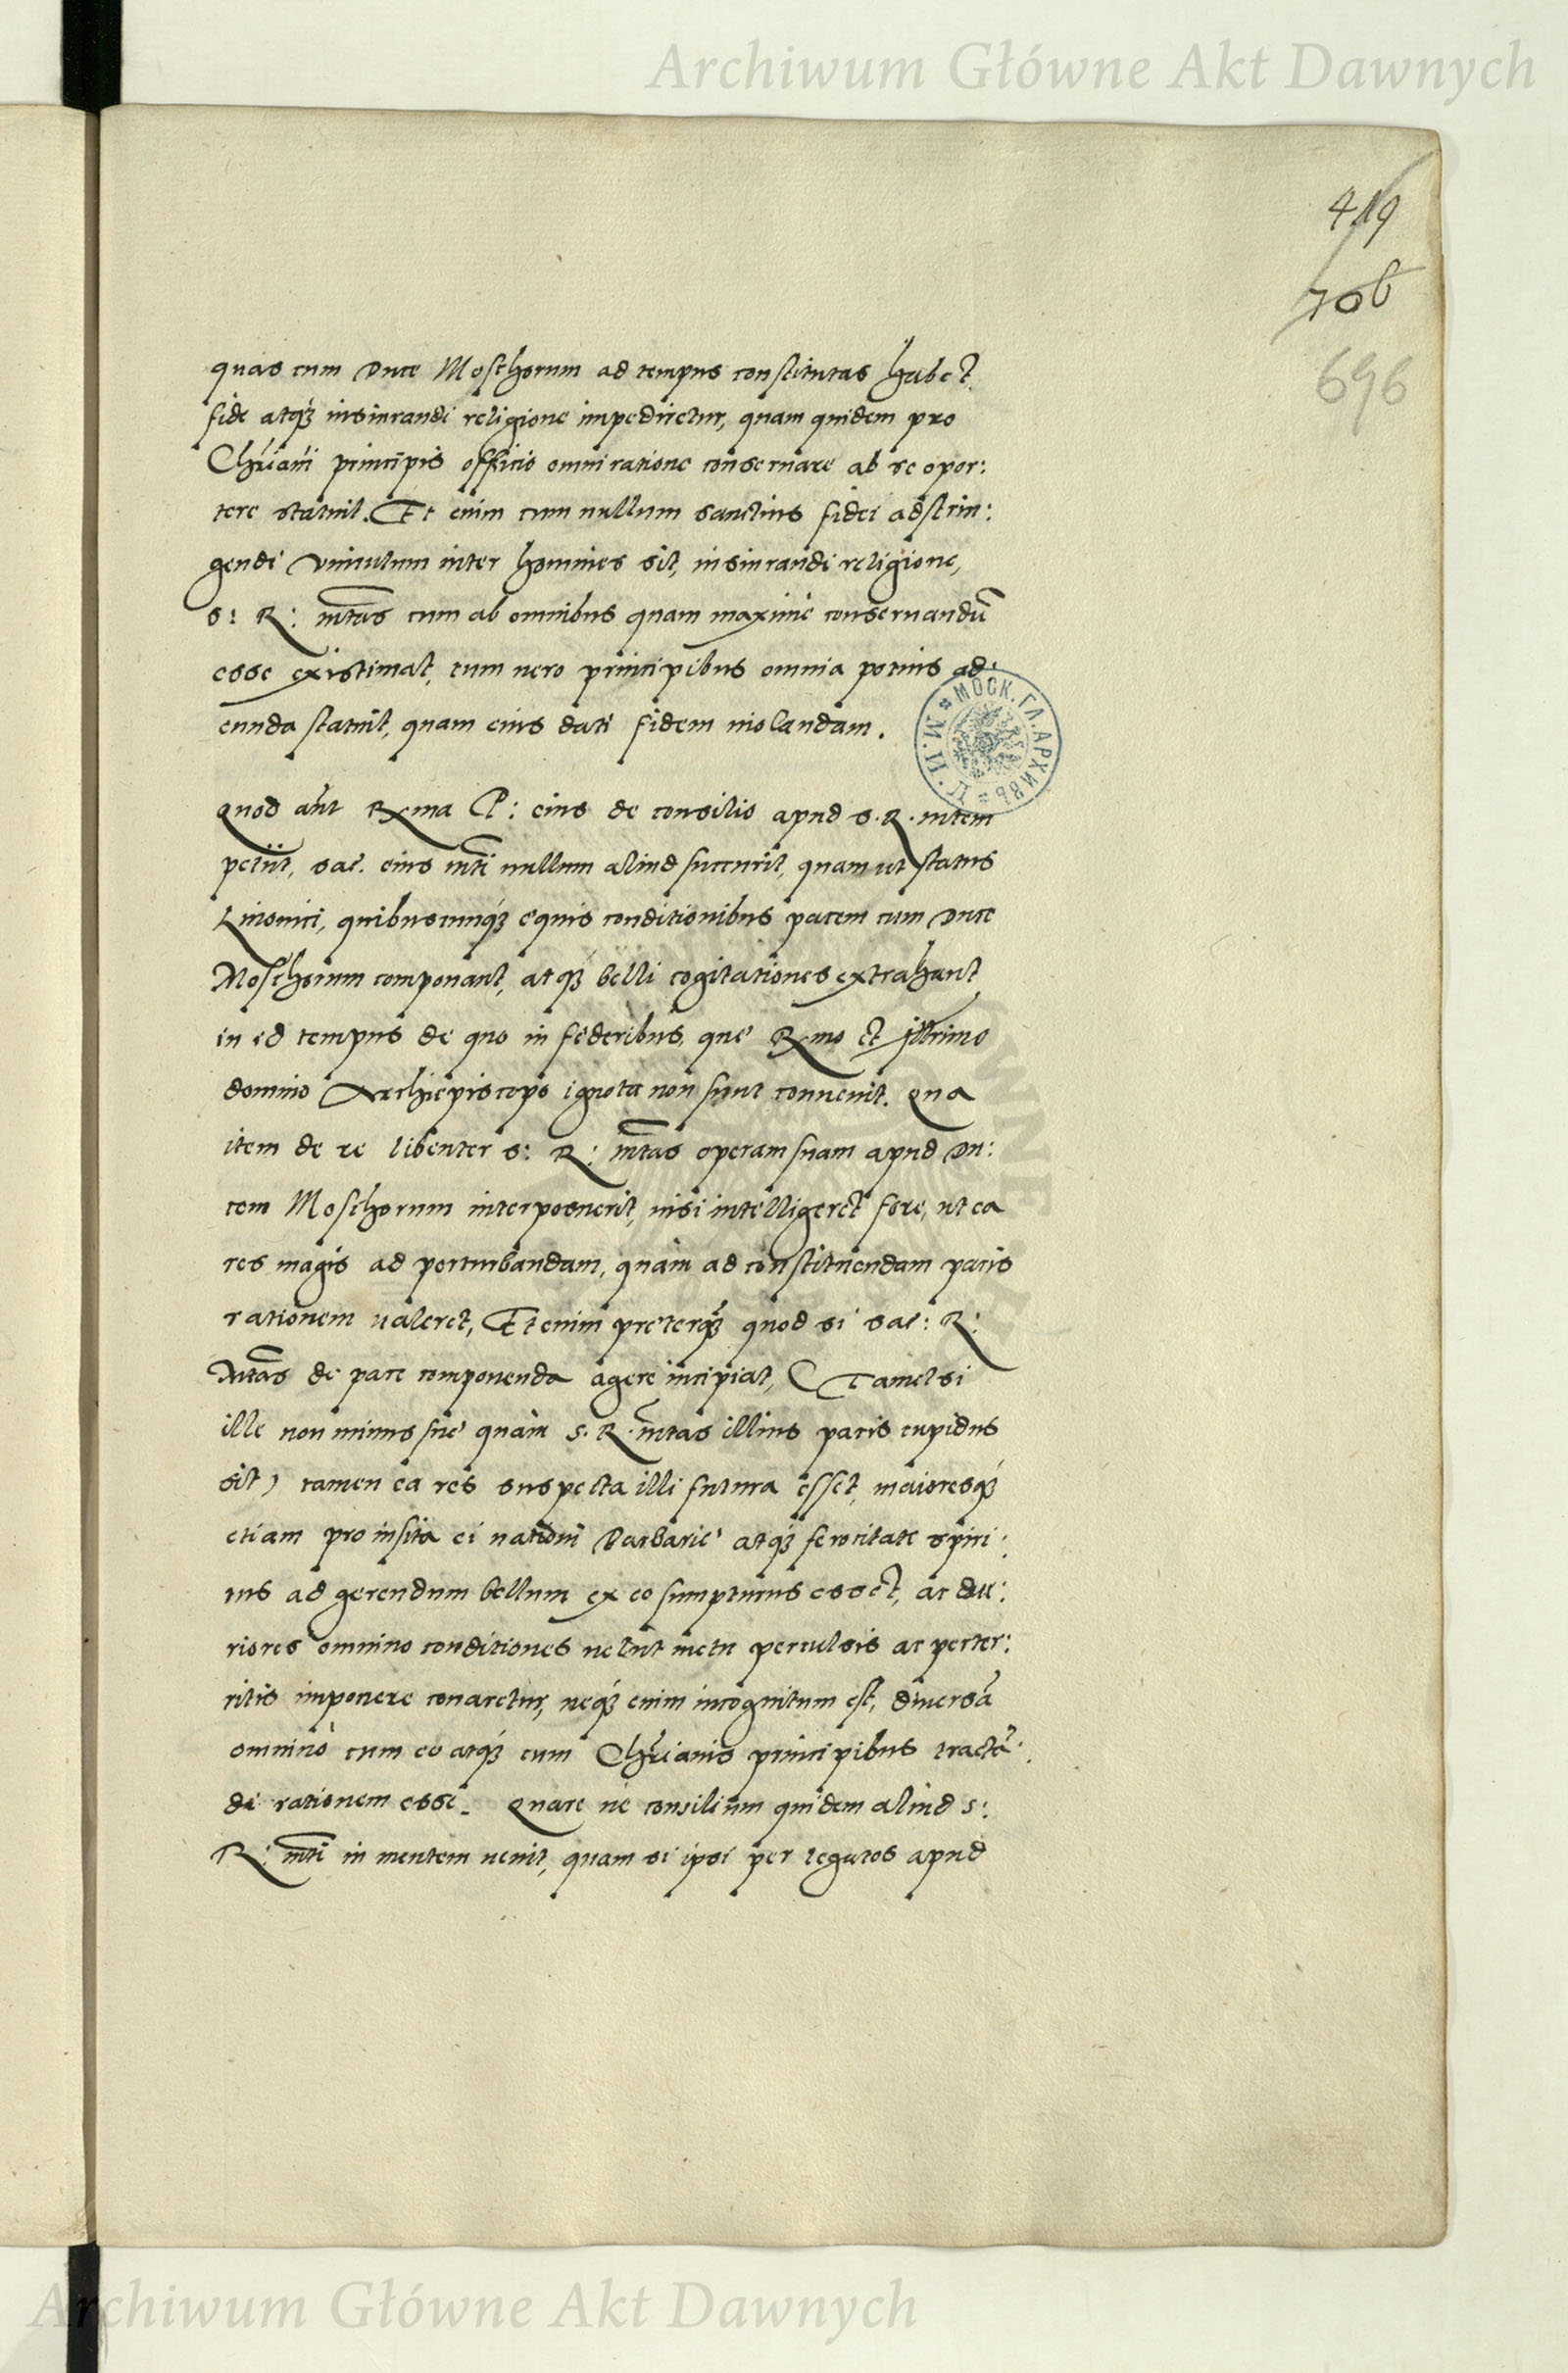 Archiwum Główne Akt Dawnych
419
706
696
quas cum Duce Moschorum ad tempus constitutas habet
fide atq́ꝫ iusiurandi religione impediretur, quam quidem pro
Chr̃iani principis officio omni ratione conseruare ab se opor:
tere statuit. Et enim cum nullum sanctius fidei adstrin:
gendi vinculum inter homines sit, iusiurandi religione,
s: R: mtas cum ab omnibus quam maxime conseruandũ
esse existimat, tum uero principibus omnia potius ad:
eunda statuit, quam eius dati fidem uiolandam.
МОСК. ГЛ. АРХИВЪ
М. И. Д.
Quod aũt Rma P: eius de consilio apud s. R. mtem
petiit, sac. eius mti nullum aliud succurrit, quam ut status
Liuonici, quibuscunq́ꝫ equis conditionibus pacem cum Duce
Moschorum componant, atq́ꝫ belli cogitationes extrahant
in id tempus de quo in federibus, que Rmo et Illmo
domino Archiepiscopo ignota non sunt conuenit. Qua
item de re libenter s: R: mtas operam suam apud Du:
cem Moschorum interposuerit, nisi intelligeret fore, ut ea
res magis ad perturbandam, quàm ad constituendam pacis
rationem ualeret, Etenim preterq́ꝫ quod si sac: R:
Mtas de pace componenda agere incipiat, ( Tametsi
ille non minus sue quàm s. R. mtas illius pacis cupidus
sit) tamen ea res suspecta illi futura esset, maioresq́ꝫ
etiam pro insita ei nationi Barbarie atq́ꝫ ferocitate spiri:
tus ad gerendum bellum ex eo sumpturus esset, ac du:
riores omnino conditiones uelut metu perculsis ac perter:
ritis imponere conaretur, neq́ꝫ enim incognitum est, diuersã
omninò cum eo atq́ꝫ cum Chr̃ianis principibus tractã:
di rationem esse. Quare ne consilium quidem aliud s:
R: mti in mentem uenit, quam si ipsi per legatos apud
Archiwum Główne Akt Dawnych